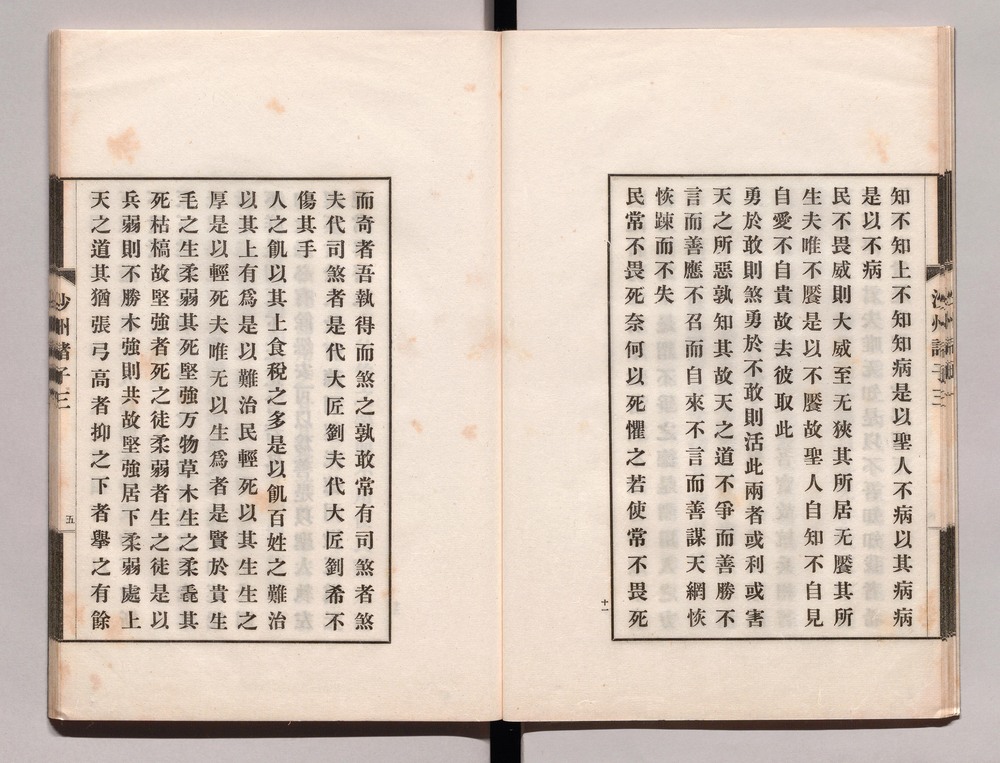 知不知上不知知病是以聖人不病以其病病
是以不病
民不畏威則大威至无狹其所居无饜其所
生夫唯不饜是以不饜故聖人自知不自見
自愛不自貴故去彼取此
勇於敢則煞勇於不敢則活此兩者或利或害
天之所惡孰知其故天之道不爭而善勝不
言而善應不召而自來不言而善謀天網恢
恢踈而不失
民常不畏死奈何以死懼之若使常不畏死
十一
而奇者吾執得而煞之孰敢常有司煞者煞
夫代司煞者是代大匠劉夫代大匠劉希不
傷其手
人之飢以其上食稅之多是以飢百姓之難治
以其上有爲是以難治民輕死以其生生之
厚是以輕死夫唯无以生爲者是賢於貴生
毛之生柔弱其死堅強万物草木生之柔毳其
死枯槁故堅強者死之徒柔弱者生之徒是以
兵弱則不勝木強則共故堅強居下柔弱處上
天之道其猶張弓高者抑之下者舉之有餘
沙州諸子三
五